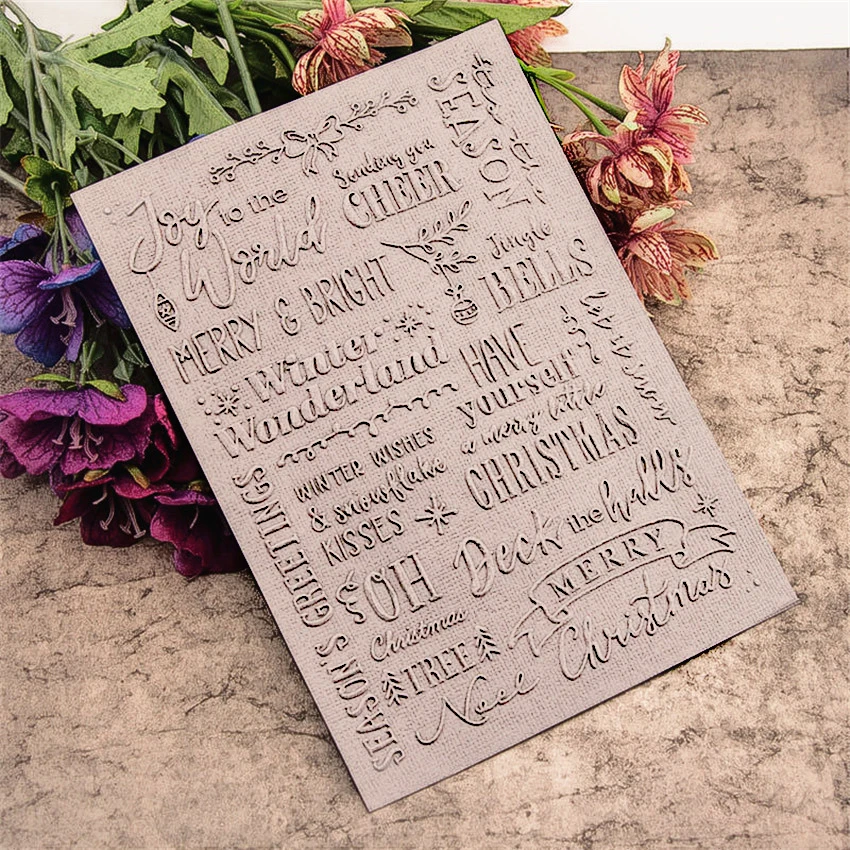 Joy
to the
World
Sending you
CHEER
tis the
SEASON
MERRY & BRIGHT
Jingle
BELLS
Winter
Wonderland
HAVE
yourself
a merry little
CHRISTMAS
let it snow
WINTER WISHES
& snowflake
KISSES
SEASON'S GREETINGS
Deck the halls
OH
Christmas
TREE
MERRY
Christmas
Noel